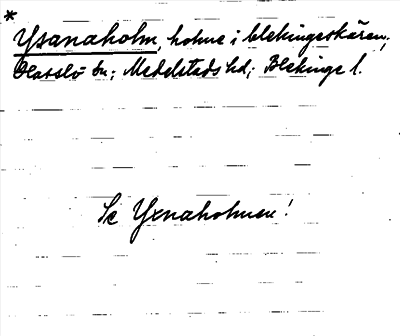 *
Yxanaholm, holme i blekingeskären;
Hasslö sn; Medelstads hd; Blekinge l.
Se Yxnaholmen!